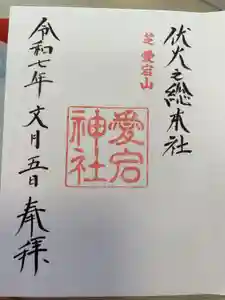 伏火之總本社
芝 愛宕山
愛宕
神社
奉拝
令和七年 文月 五日